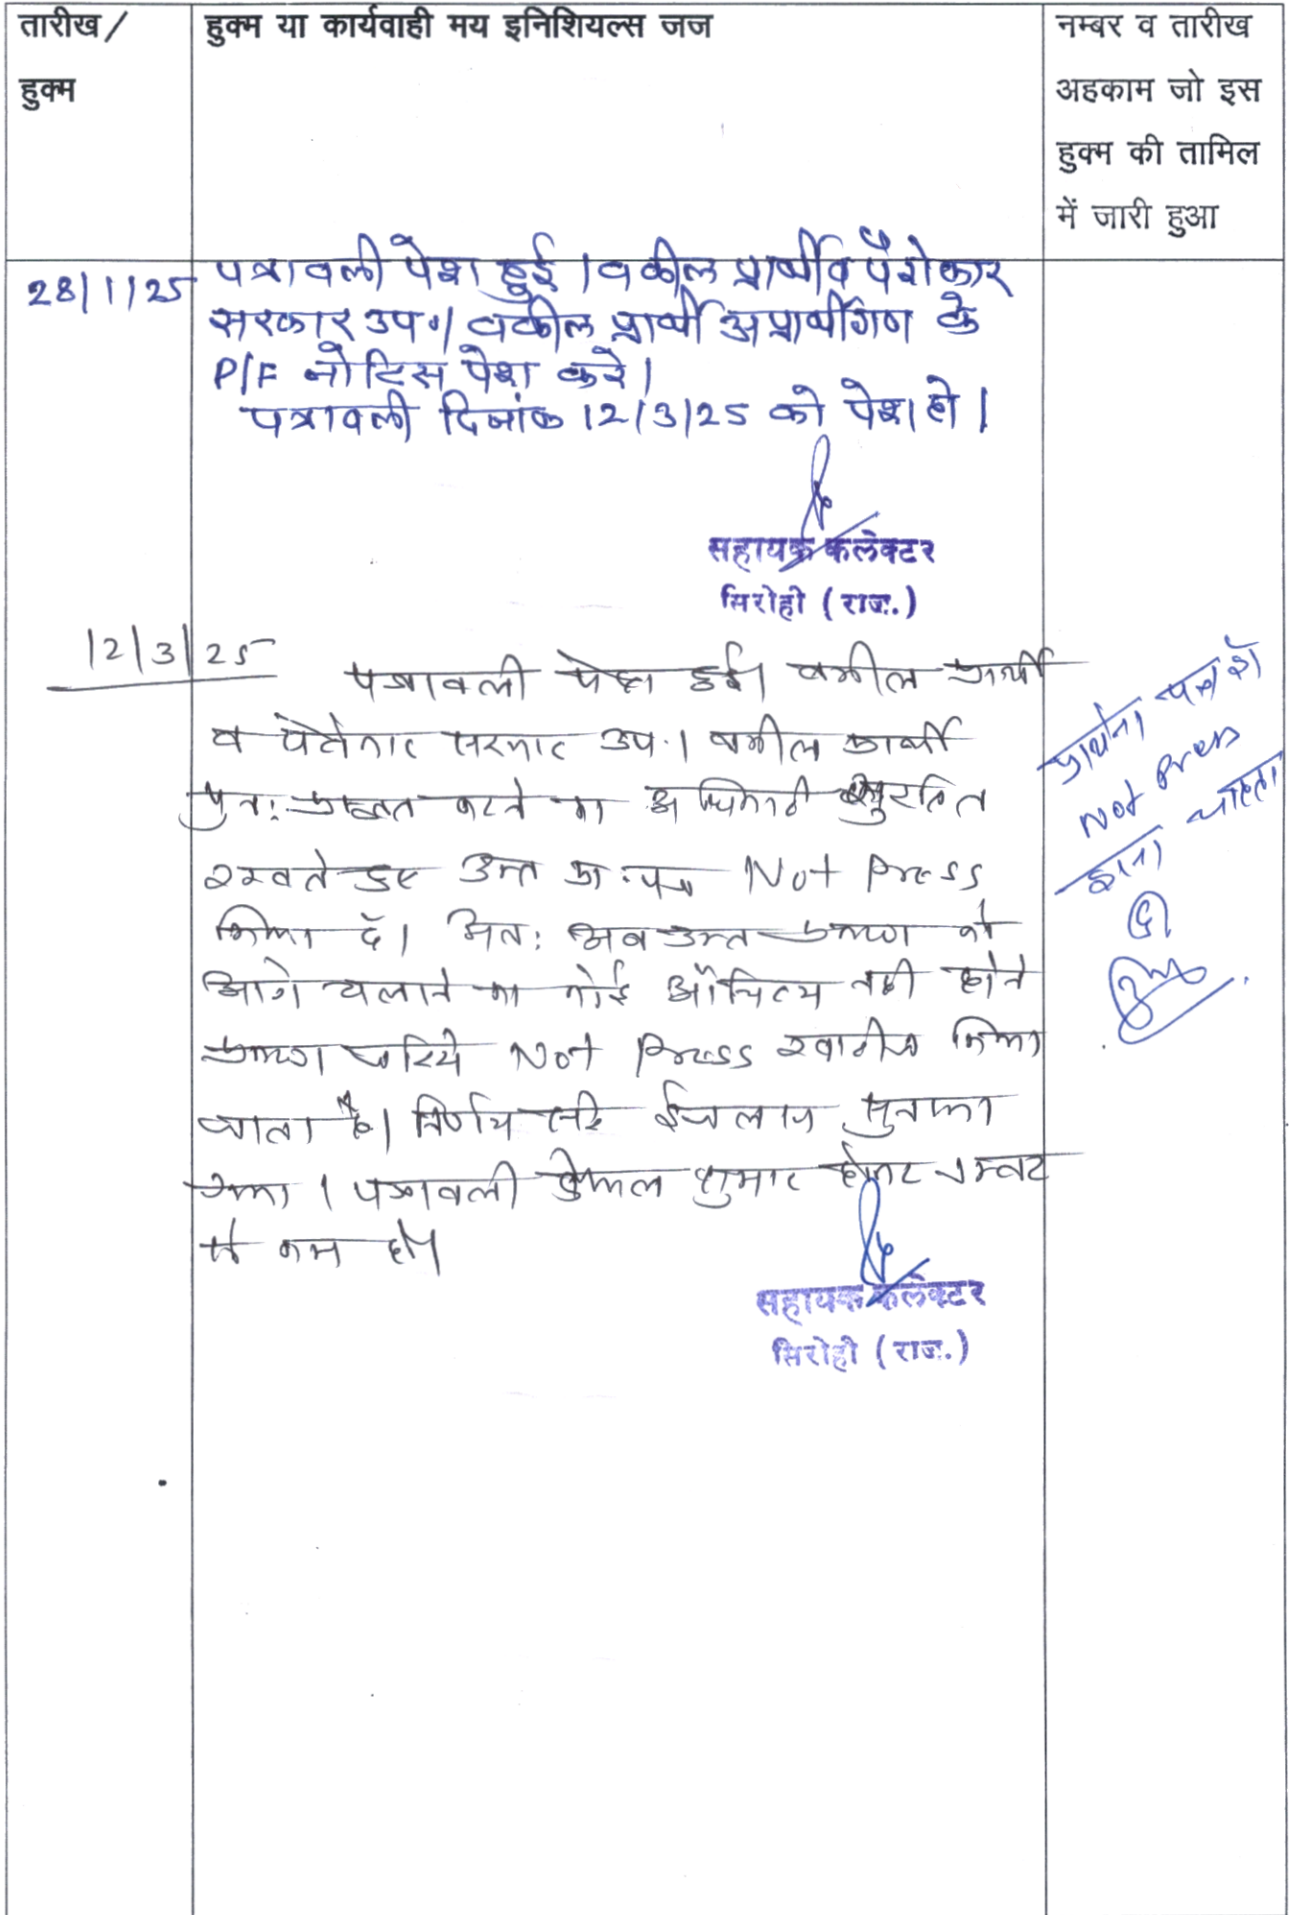 तारीख /
हुक्म
हुक्म या कार्यवाही मय इनिशियल्स जज
नम्बर व तारीख
अहकाम जो इस
हुक्म की तामिल
में जारी हुआ
28/1/25
पत्रावली पेश हुई । वकील प्रार्थी व पैरोकार
सरकार उप॰। वकील प्रार्थी अप्रार्थीगण के
P/F नोटिस पेश करे।
पत्रावली दिनांक 12/3/25 को पेश हो।
सहायक कलेक्टर
सिरोही (राज.)
12/3/25
पत्रावली पेश हुई। वकील प्रार्थी
व पेरोकार सरकार उप.। वकील प्रार्थी
पुनः प्रस्तुत करने का अधिकार सुरक्षित
रखते हुए उक्त प्रा.पत्र Not Press
किया है। अतः अब उक्त प्रकरण को
आगे चलाने का कोई औचित्य नही होने
प्रकरण जरिये Not Press खारीज किया
जाता है। निर्णय सरे ईजलास सुनाया
गया। पत्रावली फैसल शुमार होकर नम्बर
से कम हो।
सहायक कलेक्टर
सिरोही (राज.)
प्रार्थना पत्र
Not Press
चाहता